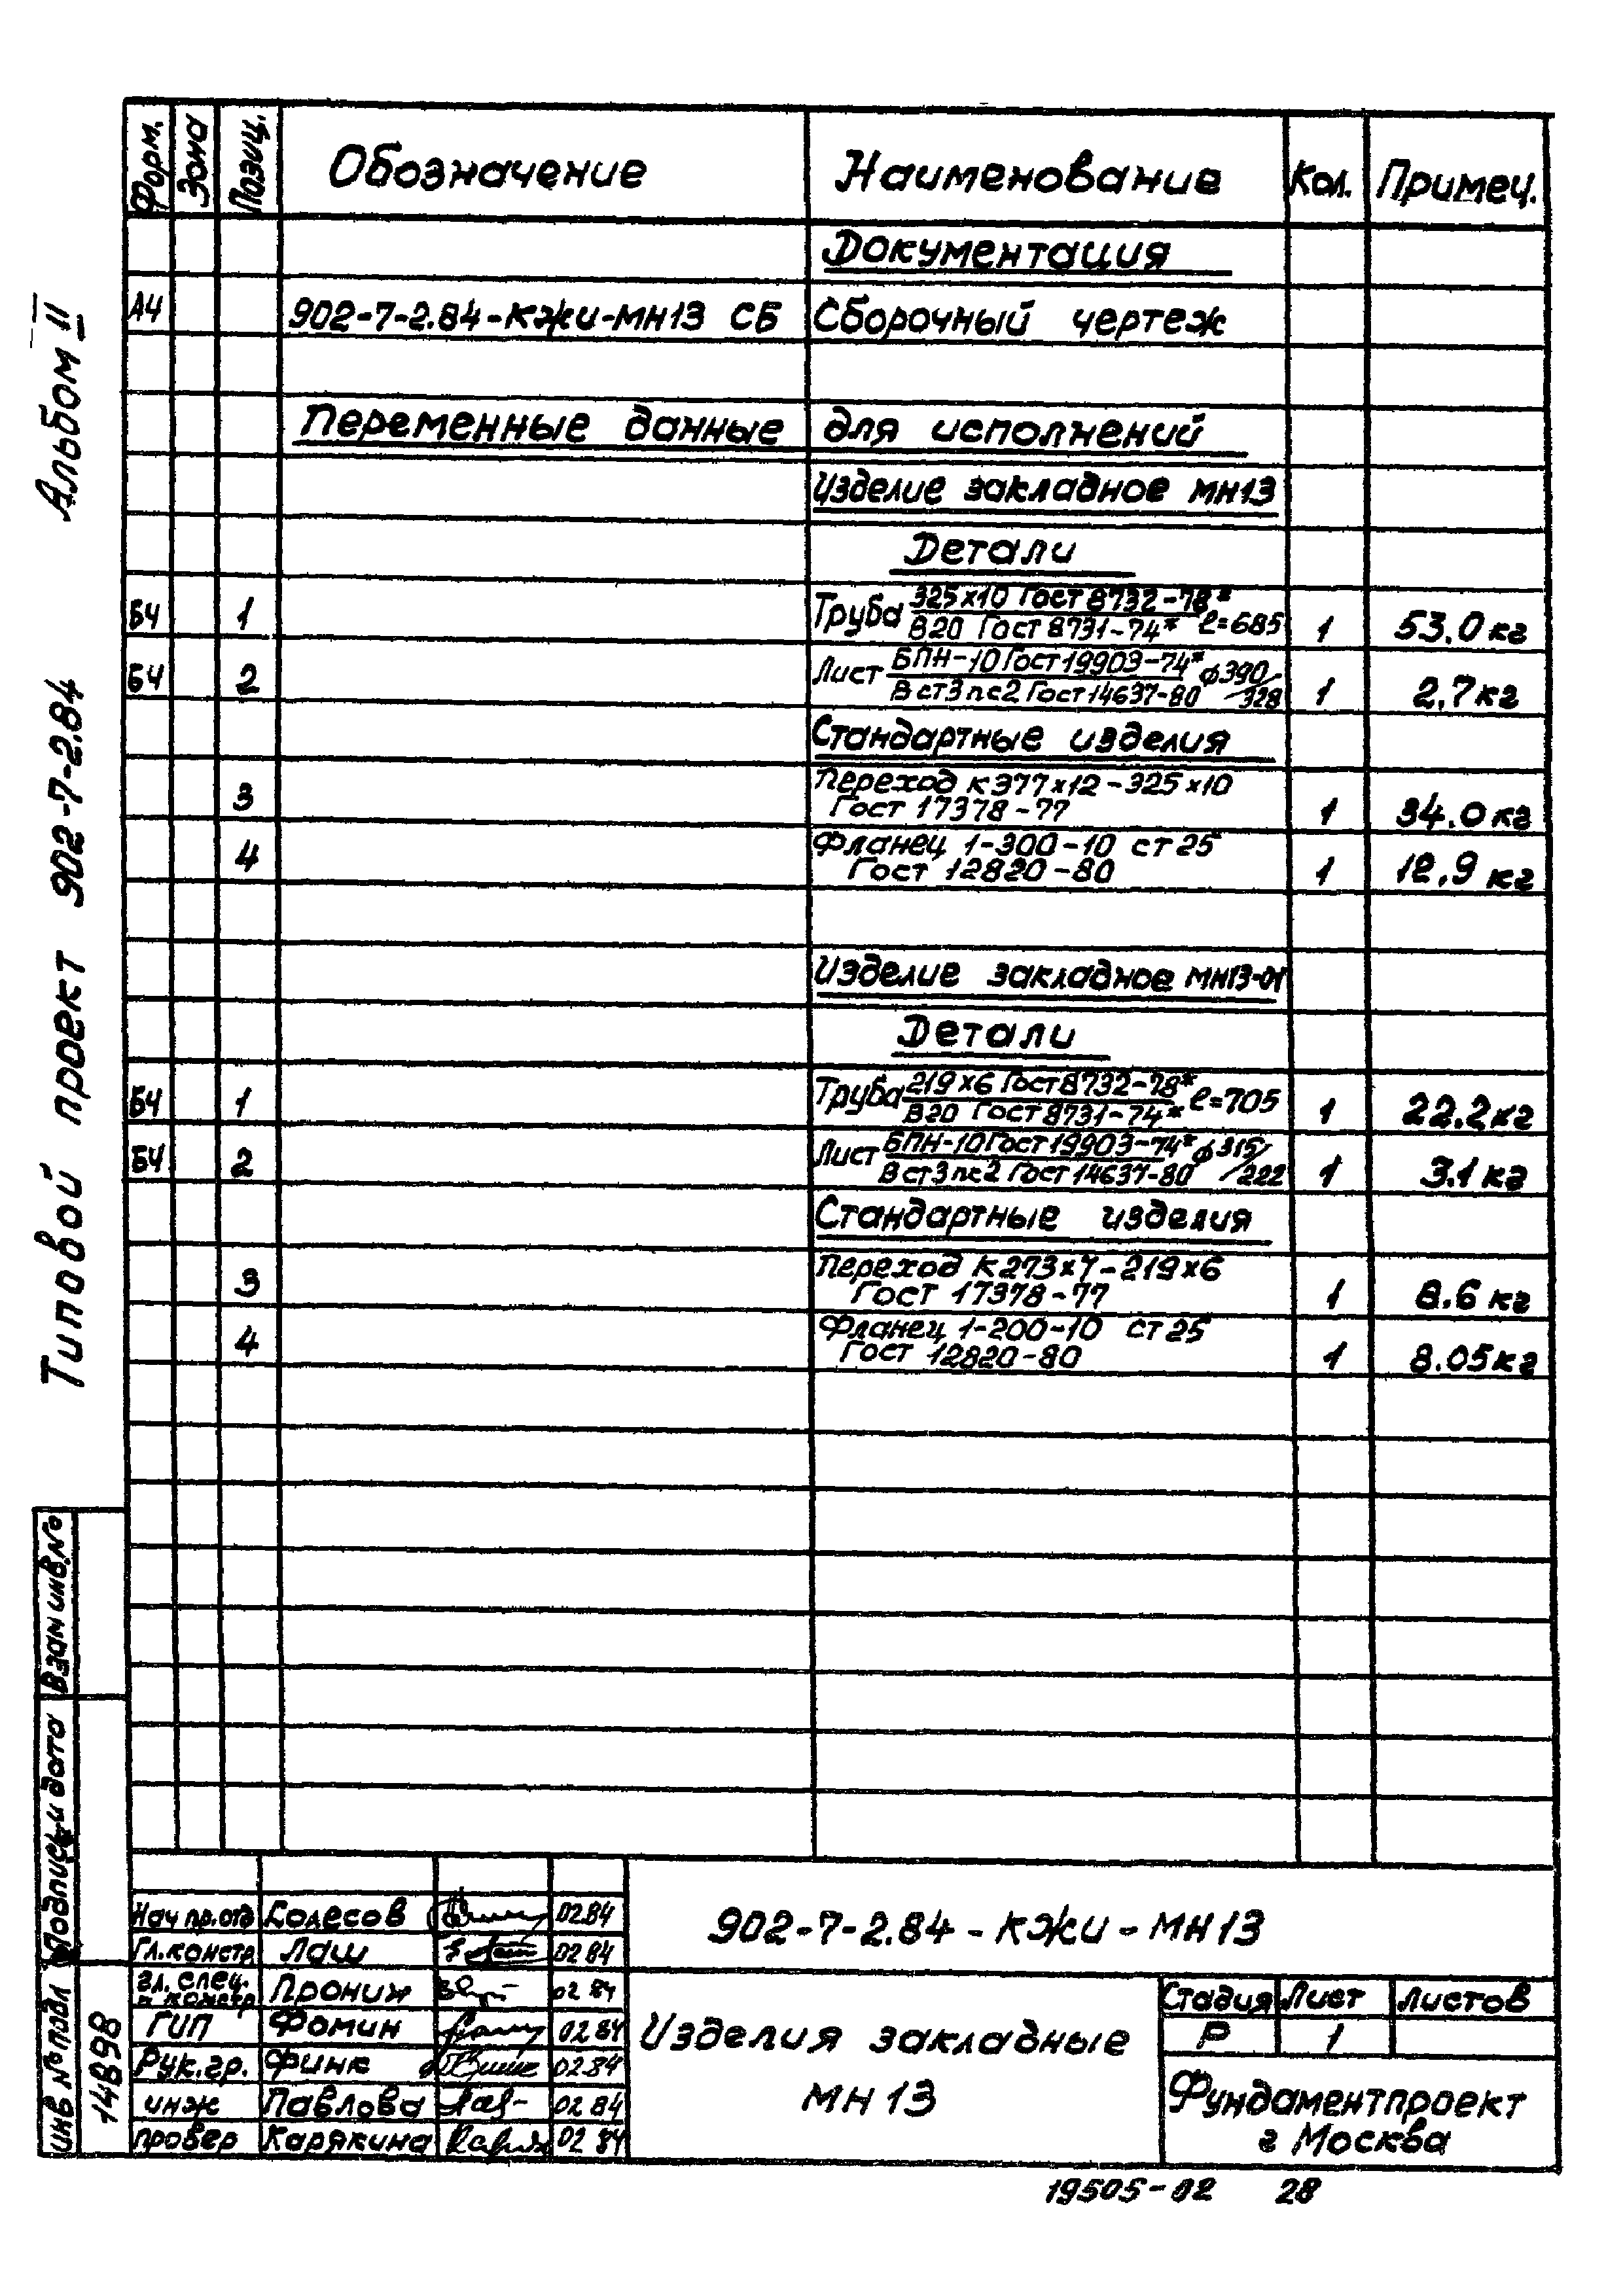 Форм.
Зона
Позиц.
Обозначение
Наименование
Кол.
Примеч.
Документация
А4 902-7-2.84-КЖИ-МН13 СБ Сборочный чертеж
Переменные данные для исполнений
Изделие закладное МН13
Детали
Б4 1 Труба 325х10 Гост 8732-78* / В20 Гост 8731-74* ℓ=685 1 53.0 кг
Б4 2 Лист БПН-10 Гост 19903-74* / Вст3пс2 Гост 14637-80 ϕ390/328 1 2.7 кг
Стандартные изделия
3 Переход К 377х12-325х10
Гост 17378-77 1 34.0 кг
4 Фланец 1-300-10 ст 25
Гост 12820-80 1 12.9 кг
Изделие закладное МН13-01
Детали
Б4 1 Труба 219х6 Гост 8732-78* / В20 Гост 8731-74* ℓ=705 1 22.2 кг
Б4 2 Лист БПН-10 Гост 19903-74* / Вст3пс2 Гост 14637-80 ϕ315/222 1 3.1 кг
Стандартные изделия
3 Переход К 273х7-219х6
Гост 17378-77 1 8.6 кг
4 Фланец 1-200-10 ст 25
Гост 12820-80 1 8.05 кг
Альбом II
Типовой проект 902-7-2.84
Взам инв.№
Подпись и дата
инв № подл
14898
Нач пр.отд Колесов 02.84
Гл.констр Лаш 02 84
гл. спец.
констр Прониж 02 84
ГИП Фомин 02 84
Рук.гр. Финк 02.84
инж Павлова 02 84
провер Карякина 02 84
902-7-2.84-КЖИ-МН13
Изделия закладные
МН 13
Стадия Лист Листов
Р 1
Фундаментпроект
г Москва
19505-02 28